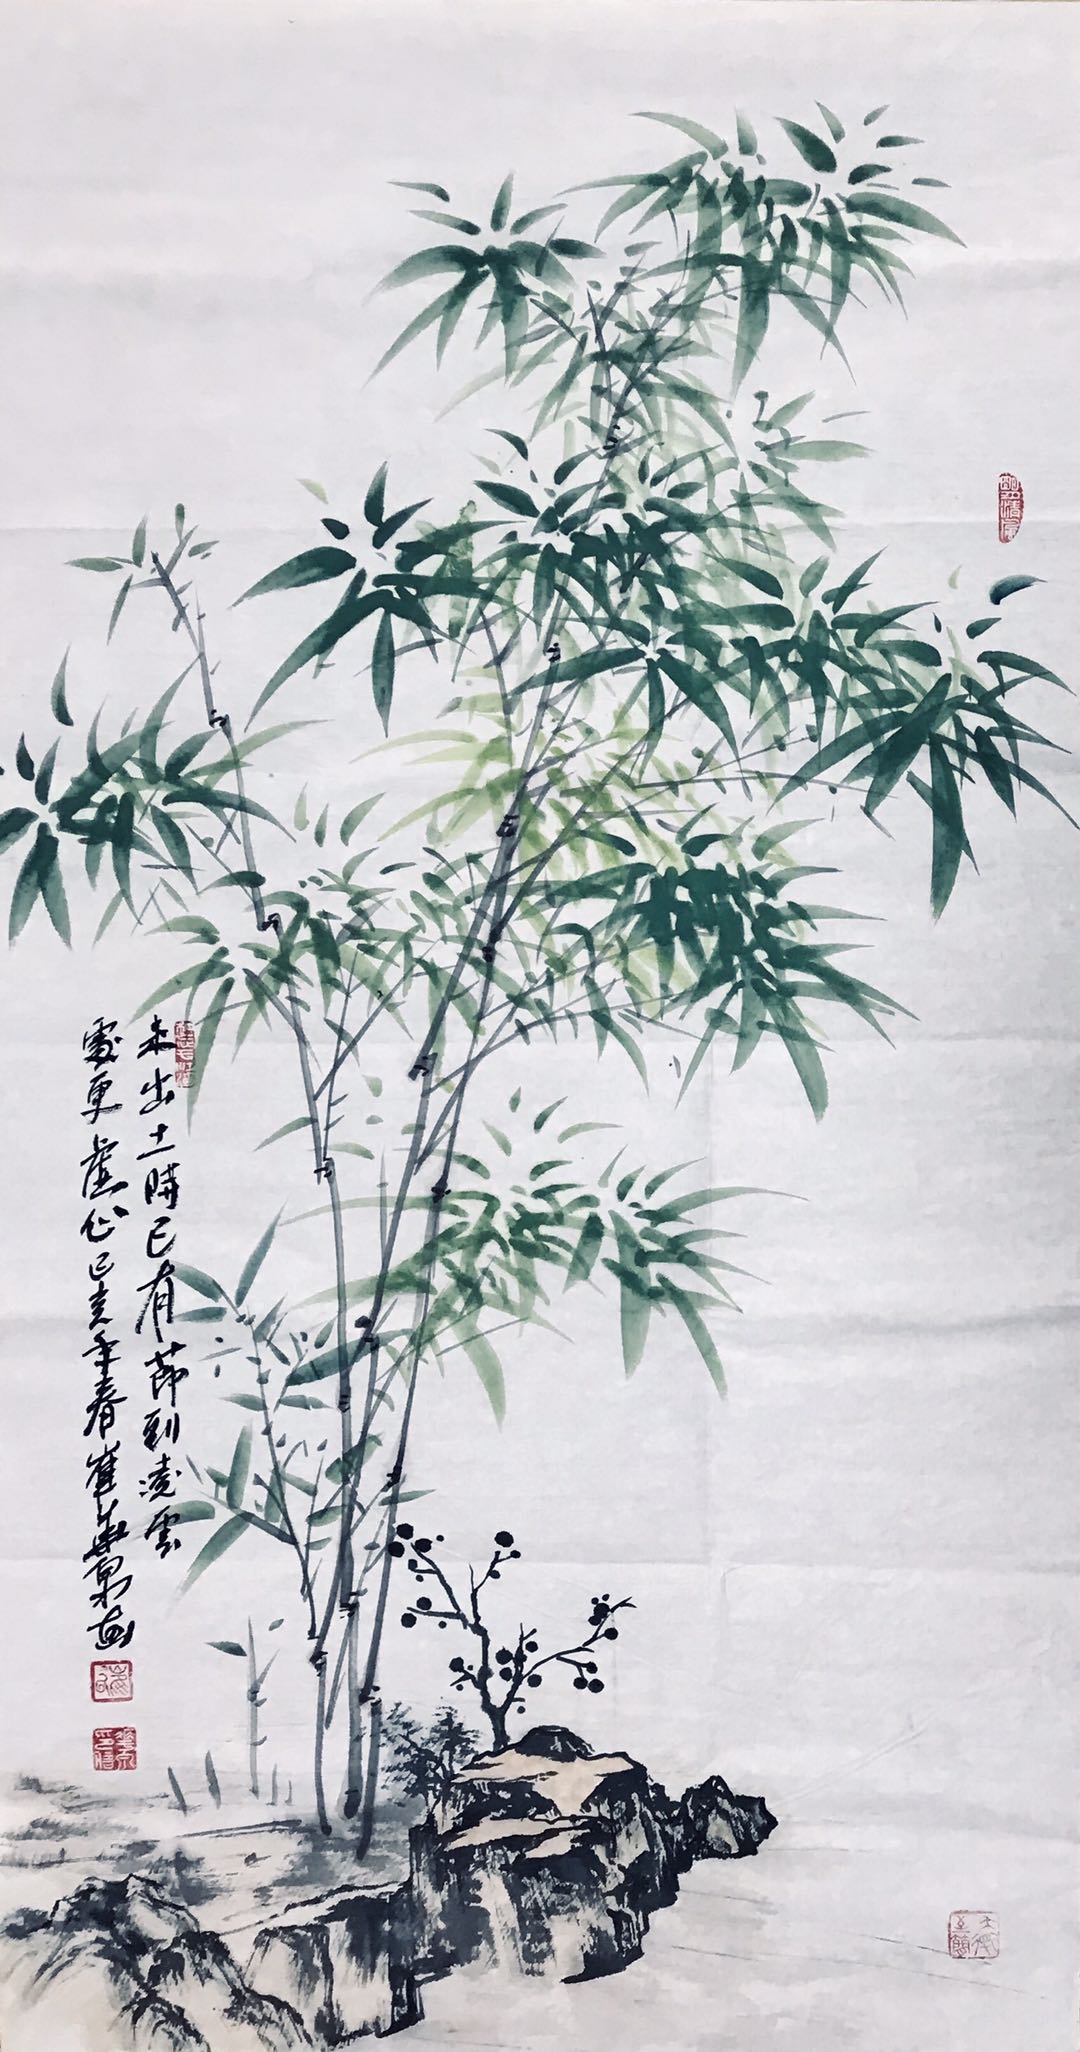 未出土時已有節到淩雲
處更虛心己亥年春崔華泉画